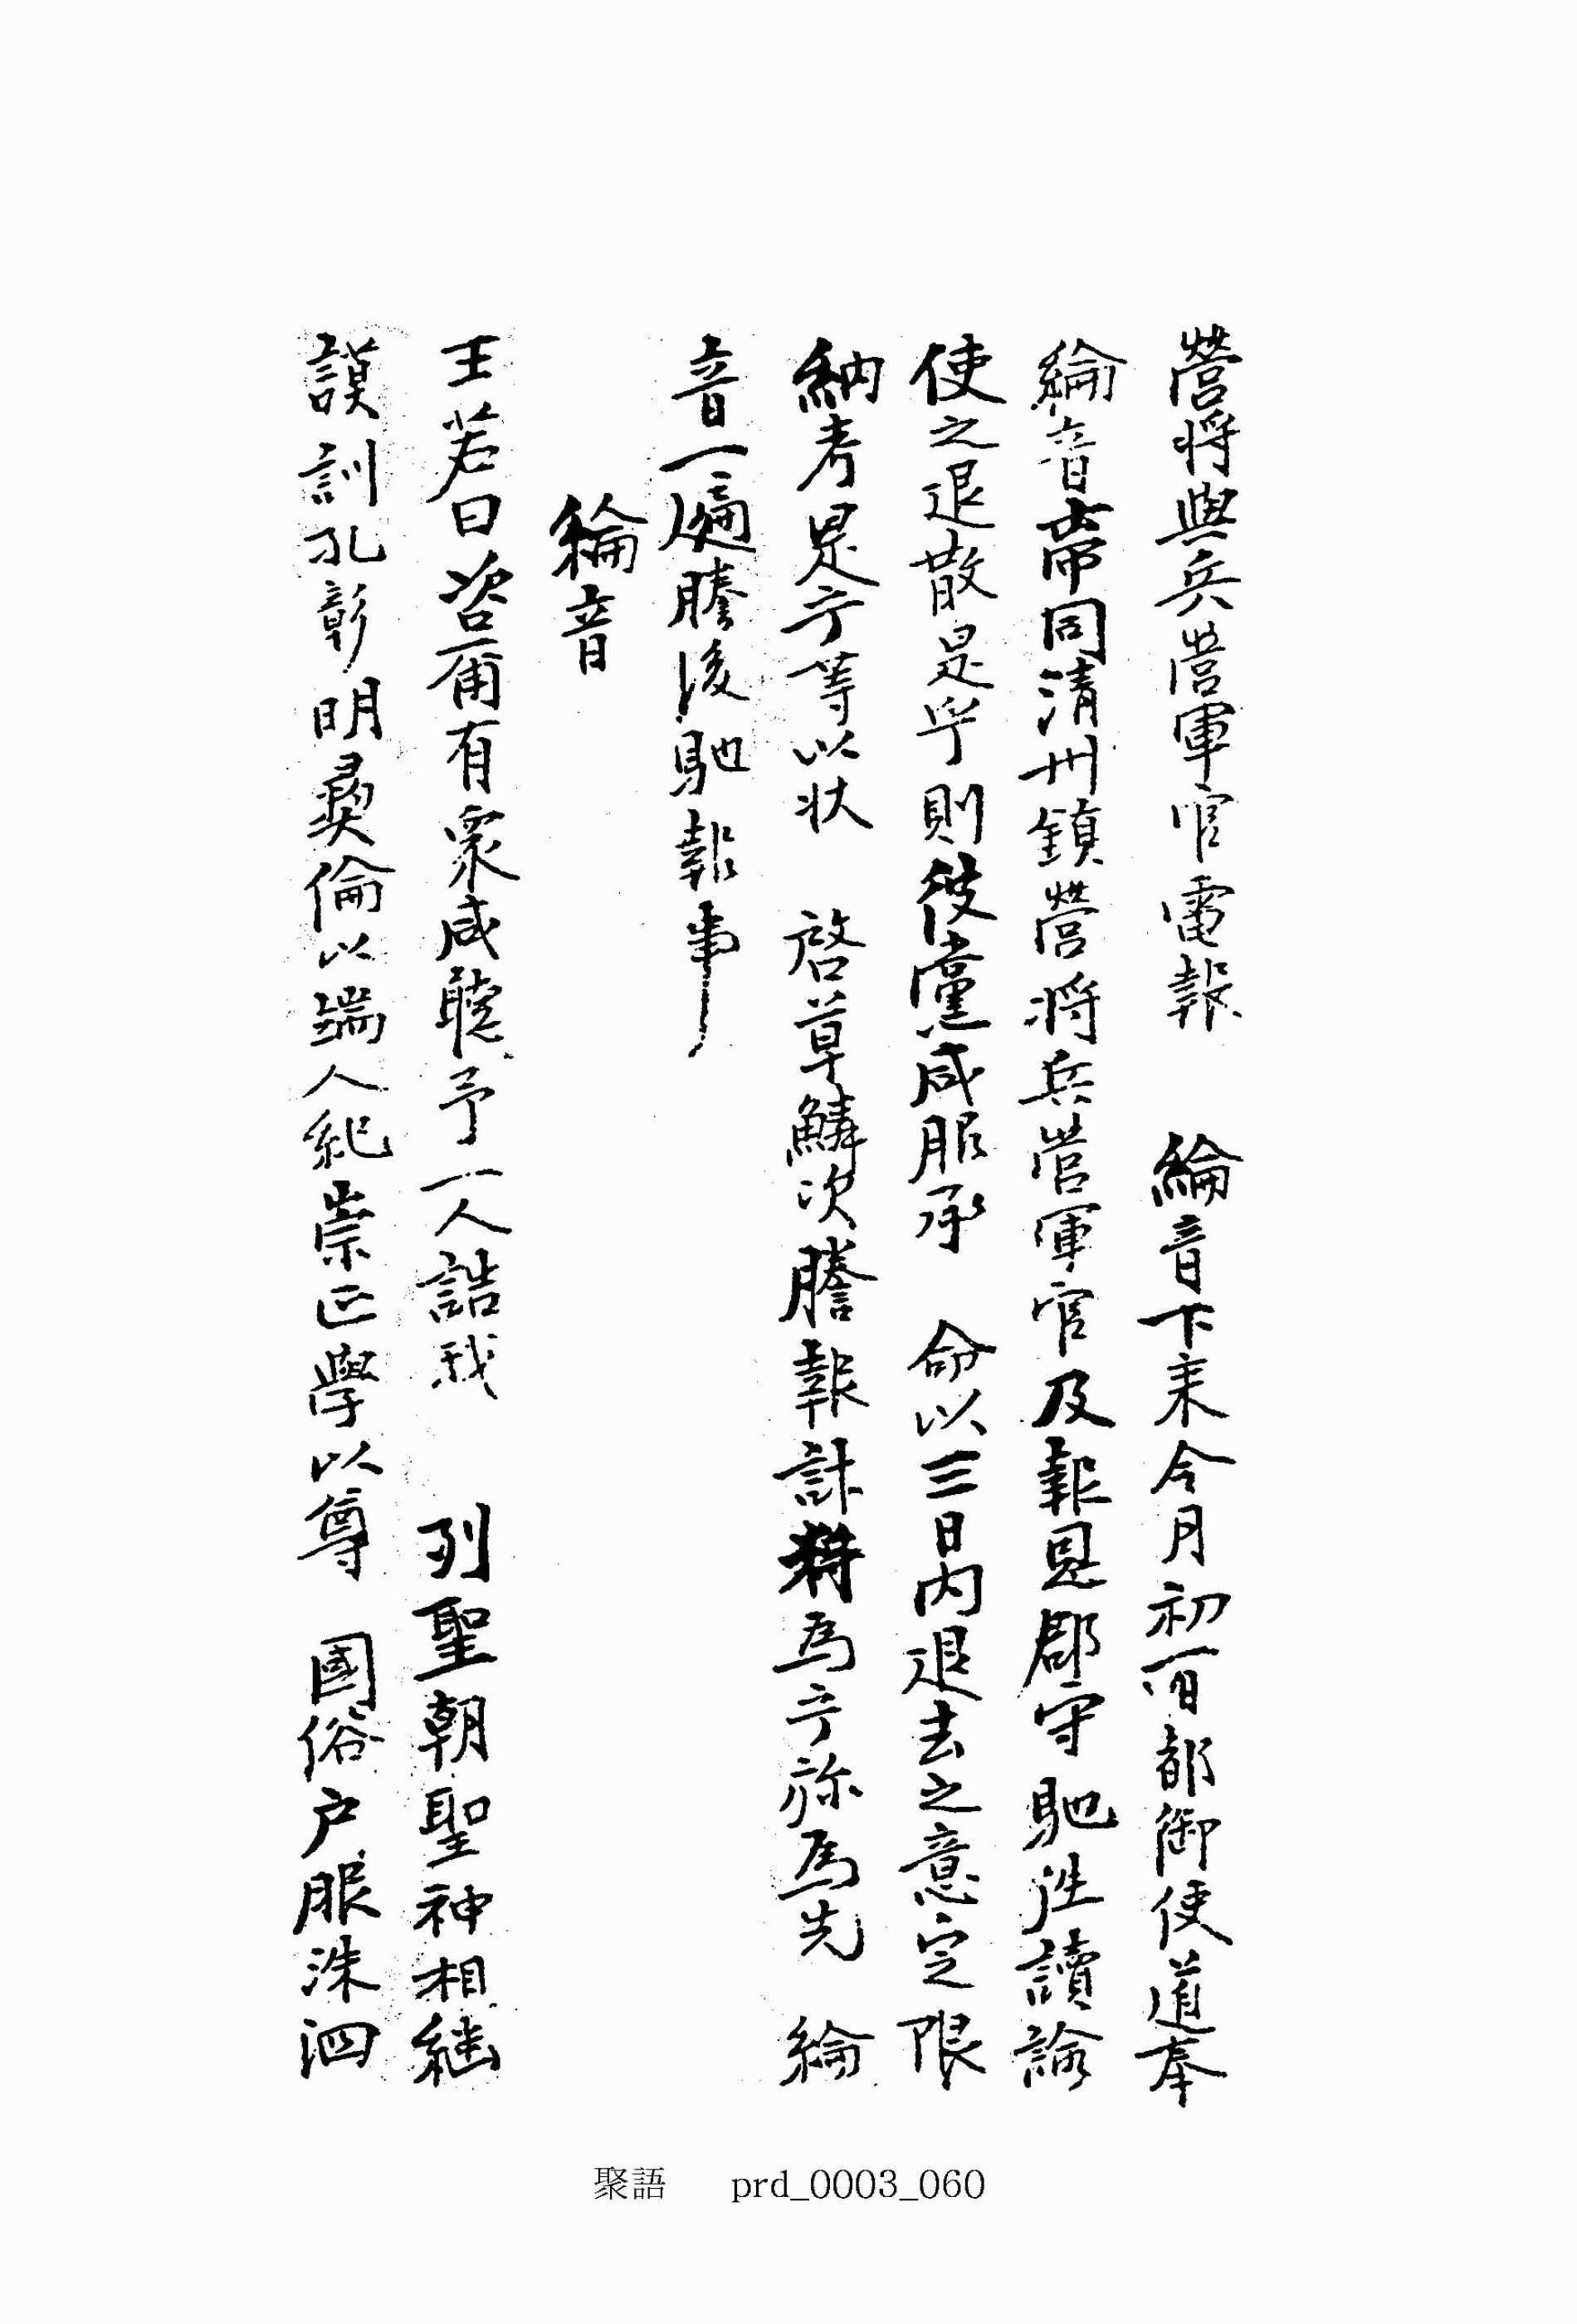 營將與兵營軍官電報 綸音下来今月初一日都御使道奉
綸音帶同清州鎮營將兵營軍官及報恩郡守馳徃讀諭
使之退散是乎則彼黨咸服承 命以三日内退去之意定限
納考是乎等以状 啓草鱗次謄報計料爲乎旀爲先 綸
音一遍謄後馳報事
綸音
王若曰咨爾有衆咸聽予一人誥我 列聖朝聖神相継
謨訓孔彰明彛倫以端人紀崇正學以尊 國俗户服洙泗
聚語 prd_0003_060